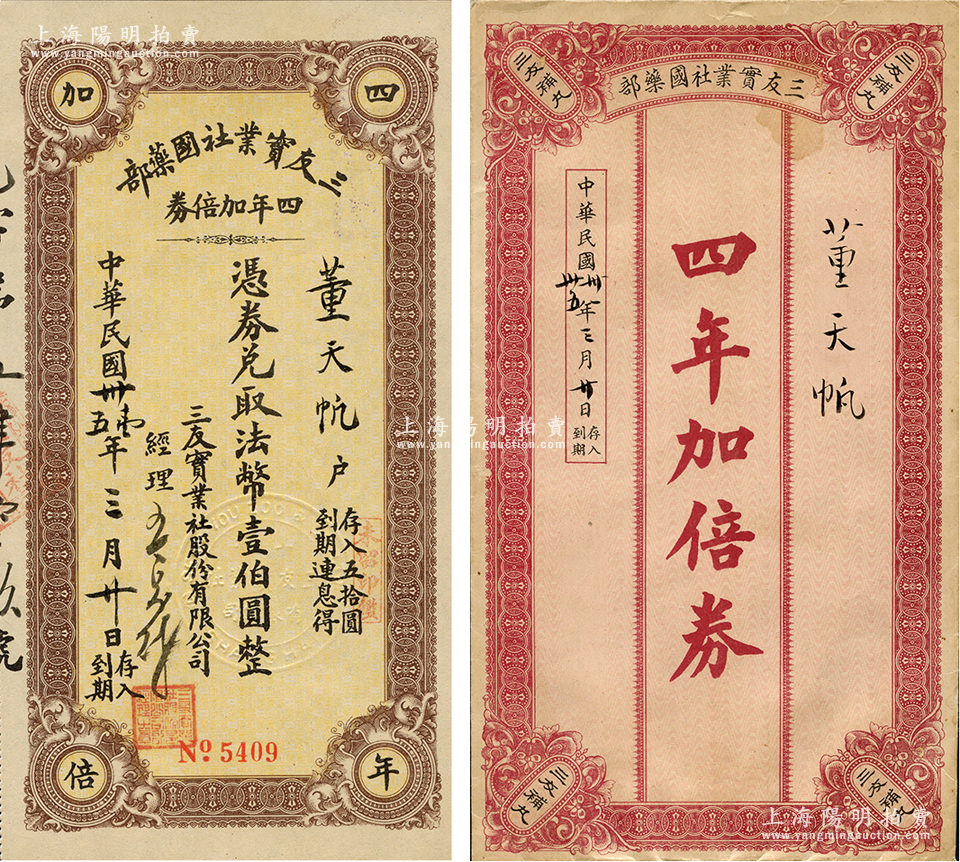 上海陽明拍賣
www.yangmingauction.com
四
年
加
倍
三友實業社國藥部
四年加倍券
董天帆戶
存入五拾圓
到期連息得
憑券兑取法幣壹佰圓整
三友實業社股份有限公司
經理
中華民國卅壹年三月廿日存入
卅五 到期
未留印鑑
No. 5409
三友實業社國藥部
三友補丸
三友補丸
三友補丸
三友補丸
董天帆
四年加倍券
中華民國卅一年三月廿日存入
卅五 到期
上海陽明拍賣
www.yangmingauction.com
上海陽明拍賣
www.yangmingauction.com